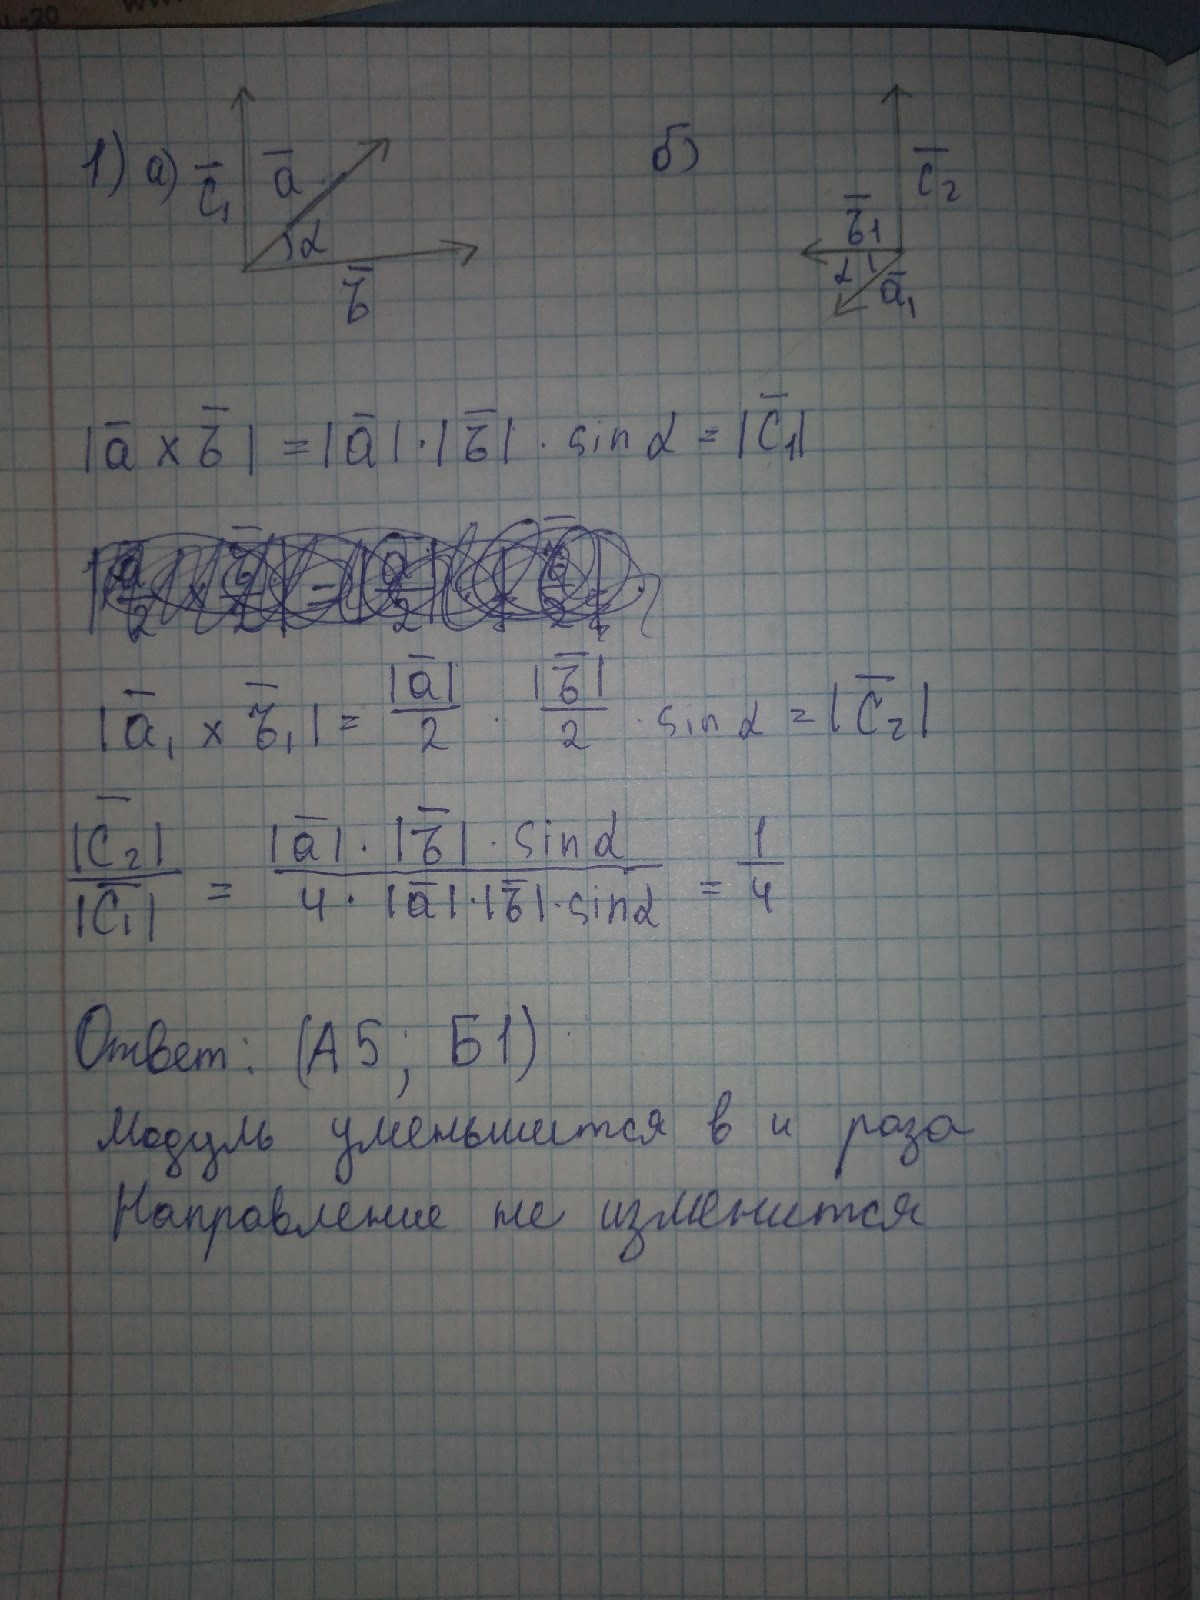 1) а) c̅₁ a̅ α b̅
б) c̅₂ b̅₁ α a̅₁
|a̅ × b̅| = |a̅| · |b̅| · sin α = |c̅₁|
|a̅₁ × b̅₁| = |a̅|/2 · |b̅|/2 · sin α = |c̅₂|
|c̅₂|/|c̅₁| = |a̅| · |b̅| · sin α / 4 · |a̅| · |b̅| · sin α = 1/4
Ответ: (А5; Б1)
Модуль уменьшится в 4 раза
Направление не изменится